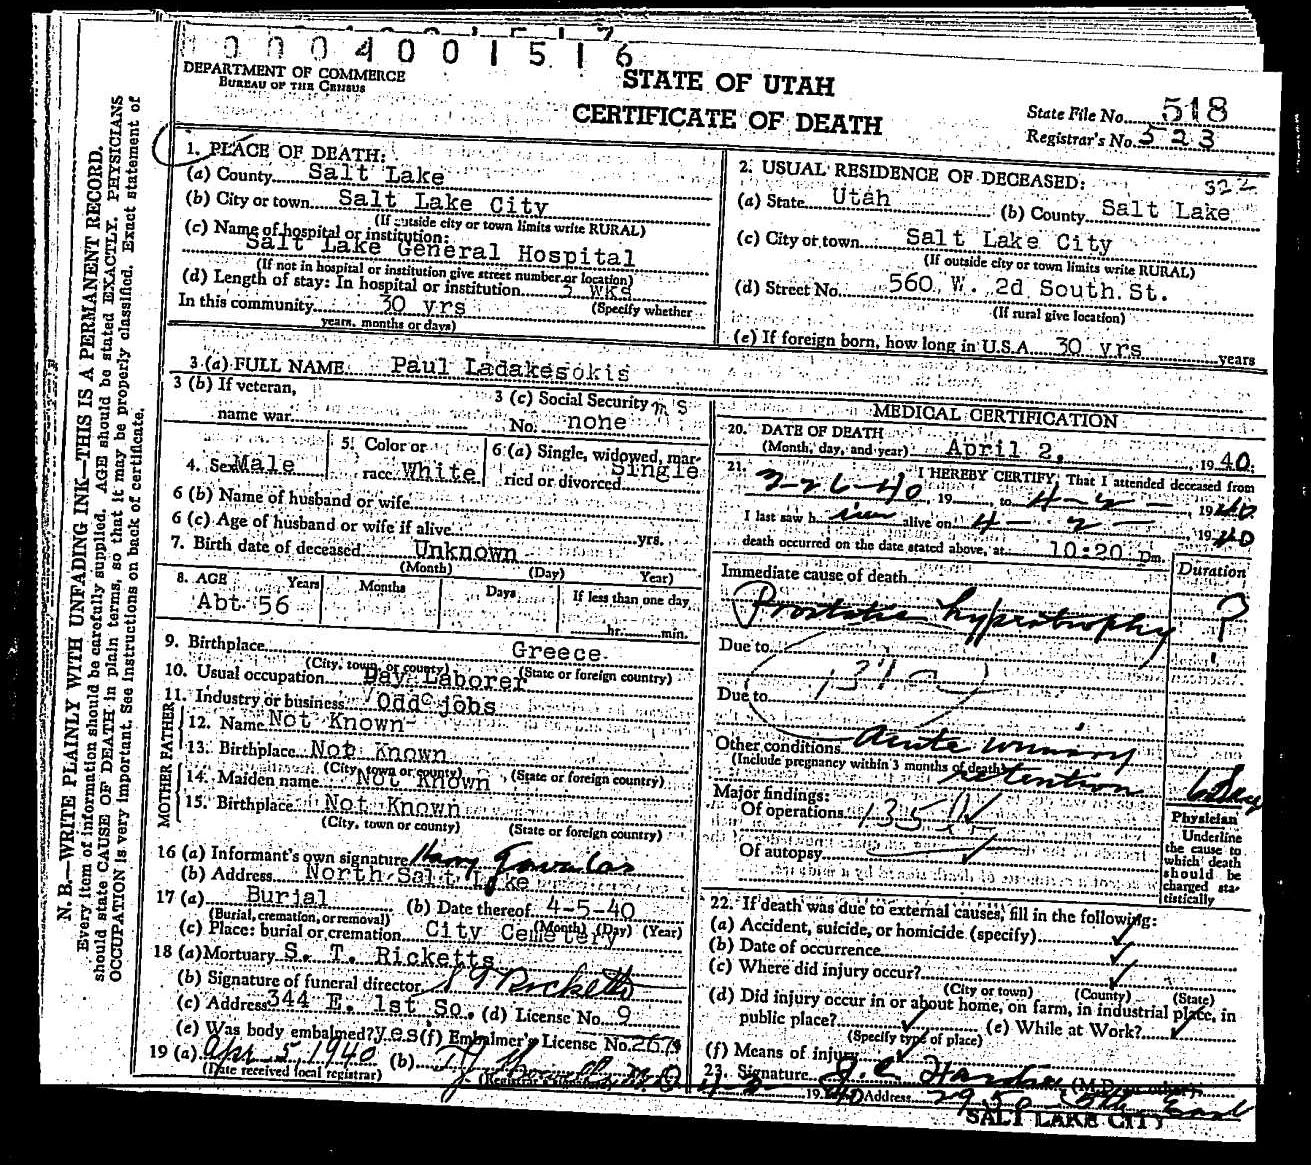 0004001516
DEPARTMENT OF COMMERCE
BUREAU OF THE CENSUS
STATE OF UTAH
CERTIFICATE OF DEATH
State File No. 518
Registrar's No. 523
N. B.—WRITE PLAINLY WITH UNFADING INK—THIS IS A PERMANENT RECORD.
Every item of information should be carefully supplied. AGE should be stated EXACTLY. PHYSICIANS
should state CAUSE OF DEATH in plain terms, so that it may be properly classified. Exact statement of
OCCUPATION is very important. See instructions on back of certificate.
1. PLACE OF DEATH:
(a) County Salt Lake
(b) City or town Salt Lake City
(If outside city or town limits write RURAL)
(c) Name of hospital or institution:
Salt Lake General Hospital
(If not in hospital or institution give street number or location)
(d) Length of stay: In hospital or institution wks
In this community 30 yrs (Specify whether
years, months or days)
2. USUAL RESIDENCE OF DECEASED: 322
(a) State Utah (b) County Salt Lake
(c) City or town Salt Lake City
(If outside city or town limits write RURAL)
(d) Street No. 560 W. 2d South St.
(If rural give location)
(e) If foreign born, how long in U.S.A. 30 yrs years
3 (a) FULL NAME Paul Ladakesokis
3 (b) If veteran,
name war
3 (c) Social Security
No. none
4. Sex Male
5. Color or
race White
6 (a) Single, widowed, mar-
ried or divorced Single
6 (b) Name of husband or wife
6 (c) Age of husband or wife if alive yrs.
7. Birth date of deceased Unknown
(Month) (Day) Year)
8. AGE Years Months Days If less than one day
Abt 56 hr. min.
9. Birthplace Greece
(City, town, or county) (State or foreign country)
10. Usual occupation Day Laborer
11. Industry or business Odd jobs
FATHER
12. Name Not Known
13. Birthplace Not Known
(City, town or county) (State or foreign country)
MOTHER
14. Maiden name Not Known
15. Birthplace Not Known
(City, town or county) (State or foreign country)
16 (a) Informant's own signature Harry
(b) Address North Salt Lake
17 (a) Burial (b) Date thereof 4-5-40
(Burial, cremation, or removal) (Month) (Day) (Year)
(c) Place: burial or cremation City Cemetery
18 (a) Mortuary S. T. Ricketts
(b) Signature of funeral director S T Ricketts
(c) Address 344 E. 1st So. (d) License No. 9
(e) Was body embalmed? yes (f) Embalmer's License No. 267
19 (a) Apr 5, 1940 (b)
(Date received local registrar)
MEDICAL CERTIFICATION
20. DATE OF DEATH
(Month, day, and year) April 2, 1940.
21. I HEREBY CERTIFY, That I attended deceased from
3-26-40, 19 to 4-2-, 1940
I last saw him alive on 4-2-, 1940
death occurred on the date stated above, at 10:20 pm.
Duration
Immediate cause of death
Prostatic hypertrophy ?
Due to
137a
Due to
Other conditions Acute urinary
(Include pregnancy within 3 months of death)
retention
Major findings:
Of operations
Of autopsy
Physician
Underline
the cause to
which death
should be
charged sta-
tistically
22. If death was due to external causes, fill in the following:
(a) Accident, suicide, or homicide (specify)
(b) Date of occurrence
(c) Where did injury occur?
(City or town) (County) (State)
(d) Did injury occur in or about home, on farm, in industrial place, in
public place? (e) While at Work?
(Specify type of place)
(f) Means of injury
23. Signature
Address
SALT LAKE CITY